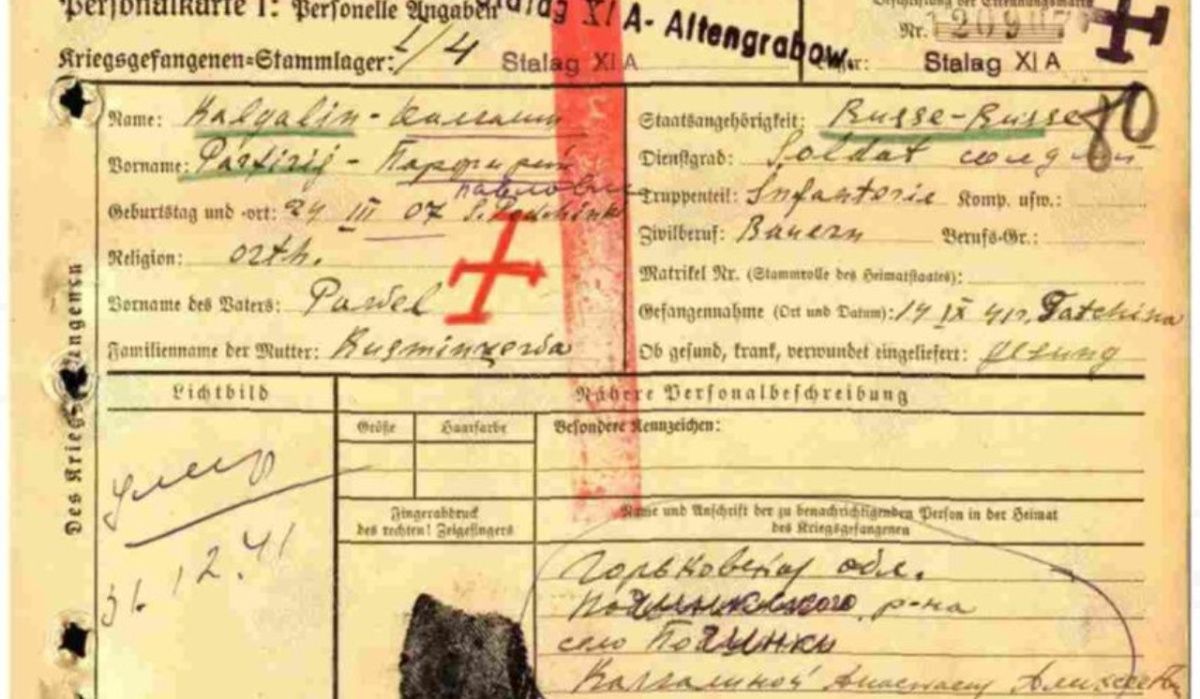 Personalkarte I: Personelle Angaben
Stalag XI A - Altengrabow
Beschriftung der Erkennungsmarke
Nr. 120907
Kriegsgefangenen=Stammlager: I/4 Stalag XI A
Lager: Stalag XI A
80
Des Kriegsgefangenen
Name: Kalgalin - Калгалин
Vorname: Parfirij - Парфирий
Павлович
Geburtstag und -ort: 24 III 07 S. Potschinki
Religion: orth.
Vorname des Vaters: Pawel
Familienname der Mutter:
Staatsangehörigkeit: Russe-Russe
Dienstgrad: Soldat солдат
Truppenteil: Infanterie Komp. usw.:
Zivilberuf: Bauern Berufs-Gr.:
Matrikel Nr. (Stammrolle des Heimatstaates):
Gefangennahme (Ort und Datum): 14 IX 41 Gatchina
Ob gesund, krank, verwundet eingeliefert: gesung
Lichtbild
умер
31. 12. 41
Nähere Personalbeschreibung
Größe
Haarfarbe
Besondere Kennzeichen:
Fingerabdruck
des rechten! Zeigefingers
Name und Anschrift der zu benachrichtigenden Person in der Heimat
des Kriegsgefangenen
Горьковская обл.
Починковского р-на
село Починки
Калгалиной Анастасии Алексеевн